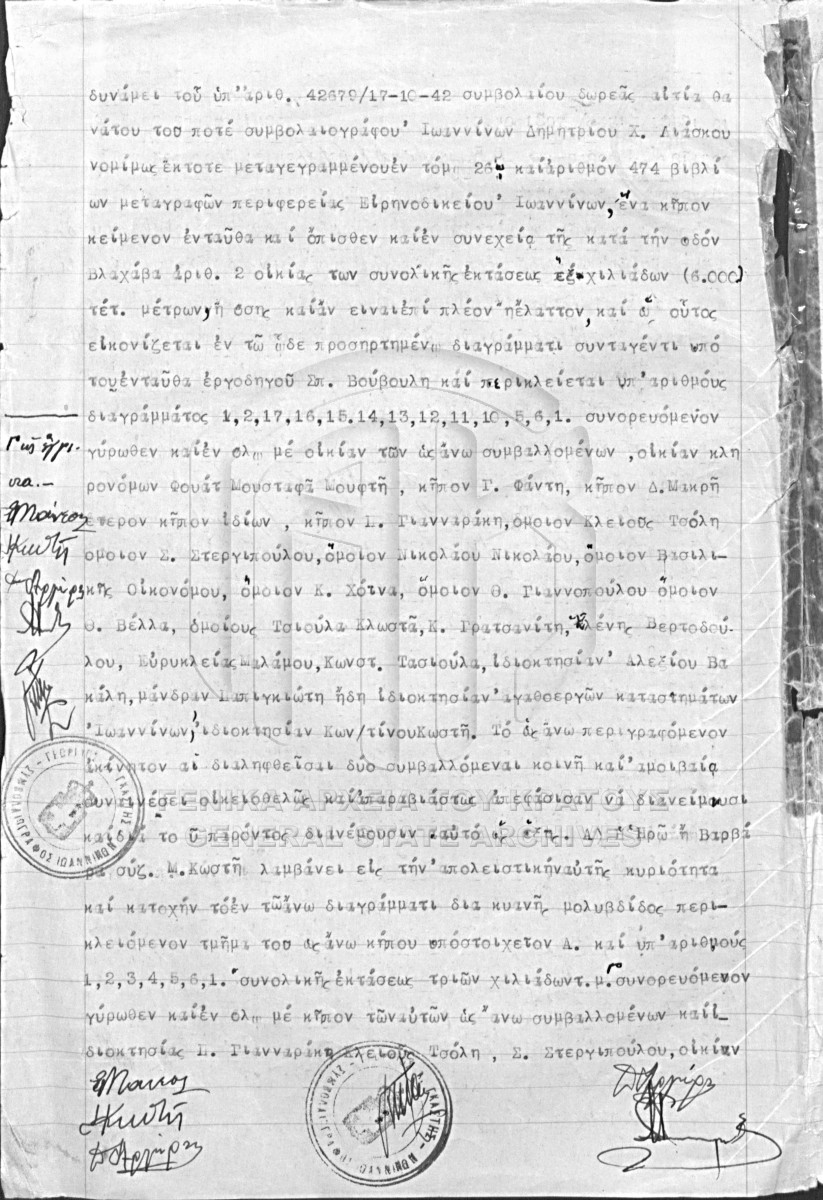 δυνάμει τοῦ ὑπ' ἀριθ. 42679/17-10-42 συμβολαίου δωρεᾶς αἰτία θα
νάτου του ποτέ συμβολαιογράφου Ἰωαννίνων Δημητρίου Χ. Λιάσκου
νομίμως ἔκτοτε μεταγεγραμμένου ἐν τόμ 26ῳ καί ἀριθμόν 474 βιβλί
ων μεταγραφῶν περιφερείας Εἰρηνοδικείου Ἰωαννίνων, ἕνα κῆπον
κείμενον ἐνταῦθα καί ὄπισθεν καί ἐν συνεχεία τῆς κατά τήν οδόν
Βλαχάβα ἀριθ. 2 οἰκίας των συνολικῆς ἐκτάσεως ἑξ χιλιάδων (6.000)
τέτ. μέτρων, ἤ ὅσης καί ἄν ειναι ἐπί πλέον ἤ ἔλαττον, καί ὡ οὗτος
εἰκονίζεται ἐν τῶ ὧδε προσηρτημένῳ διαγράμματι συνταγέντι υπό
του ἐνταῦθα ἐργοδηγοῦ Σπ. Βούβουλη καί περικλείεται υπ' ἀριθμούς
διαγράμματος 1,2,17,16,15.14,13,12,11,10,5,6,1. συνορευόμενον
γύρωθεν καί ἐν ὁλῳ μέ οἰκίαν τῶν ὡς ἄνω συμβαλλομένων, οἰκίαν κλη
ρονόμων Φουάτ Μουσταφᾶ Μουφτῆ, κῆπον Γ. Φάντη, κῆπον Δ. Μακρῆ
ετερον κῆπον ἰδίων, κῆπον Σ. Γιανναρίκη, ὁμοιον Κλειοῦς Τσόλη
ὁμοιον Σ. Στεργιοπούλου, ὅμοιον Νικολάου Νικολάου, ὅμοιον Βασιλι-
κῆς Οἰκονόμου, ὅμοιον Κ. Χότνα, ὅμοιον Θ. Γιαννοπούλου ὅμοιον
Θ. Βέλλα, ὁμοίους Τσιούλα Κλωστᾶ, Κ. Γρατσανίτη, Ἑλένης Βερτοδού-
λου, Εὐρυκλείας Μαλάμου, Κωνστ. Τασιούλα, ἰδιοκτησίαν Ἀλεξίου Βα
κάλη, μάνδραν Λαπιγκιώτη ἤδη ἰδιοκτησίαν ἀγαθοεργῶν καταστημάτων
Ἰωαννίνων, ἰδιοκτησίαν Κων/τίνου Κωστῆ. Τό ὡς ἄνω περιγραφόμενον
ἀκίνητον αἱ διαληφθεῖσαι δύο συμβαλλόμεναι κοινῆ καί ἀμοιβαία
συναινέσει οἰκειοθελῶς καί απαραβιάστως ἀπεφάσισαν νά διανείμωσι
καί διά το ῦ παρόντος διανέμουσιν αυτό ὡς ἑξῆς. Α) Ἡ Ἡρῶ ἤ Βαρβά
ρα σύζ. Μ. Κωστῆ λαμβάνει εἰς τήν ἀπολειστικήν αὐτῆς κυριότητα
καί κατοχήν τό ἐν τῶ ἄνω διαγράμματι δια κυανῆς μολυβδίδος περι-
κλειόμενον τμῆμα του ὡς ἄνω κήπου υπό στοιχεῖον Α. καί ὑπ' ἀριθμούς
1,2,3,4,5,6,1. συνολικῆς ἐκτάσεως τριῶν χιλιάδων τ.μ. συνορευόμενον
γύρωθεν καί ἐν ὁλῳ μέ κῆπον τῶν αὐτῶν ὡς ἄνω συμβαλλομένων καί ἰ-
διοκτησίας Σ. Γιανναρίκη Κλειοῦς Τσόλη, Σ. Στεργιοπούλου, οἰκίαν
ΓΕΝΙΚΑ ΑΡΧΕΙΑ ΤΟΥ ΚΡΑΤΟΥΣ
GENERAL STATE ARCHIVES